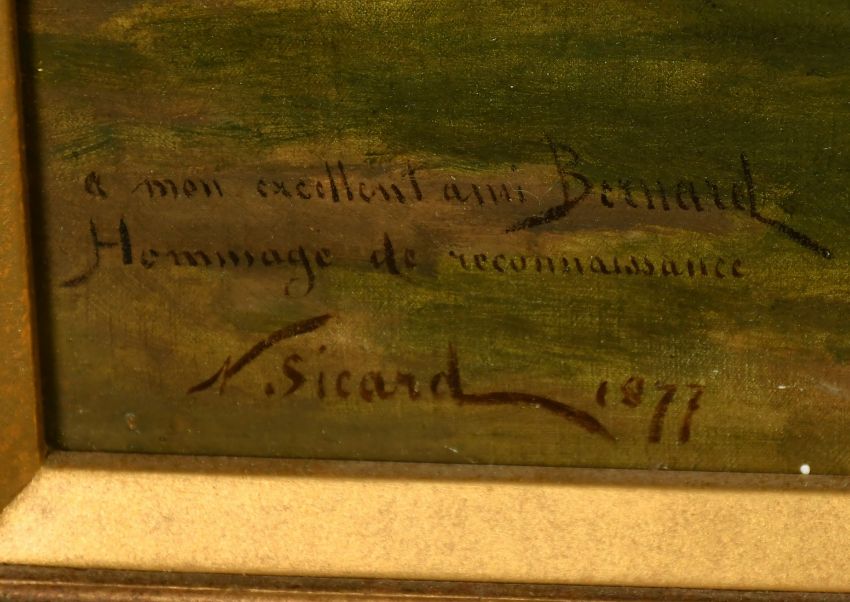 a mon excellent ami Bernard
Hommage de reconnaissance
N. Sicard 1877